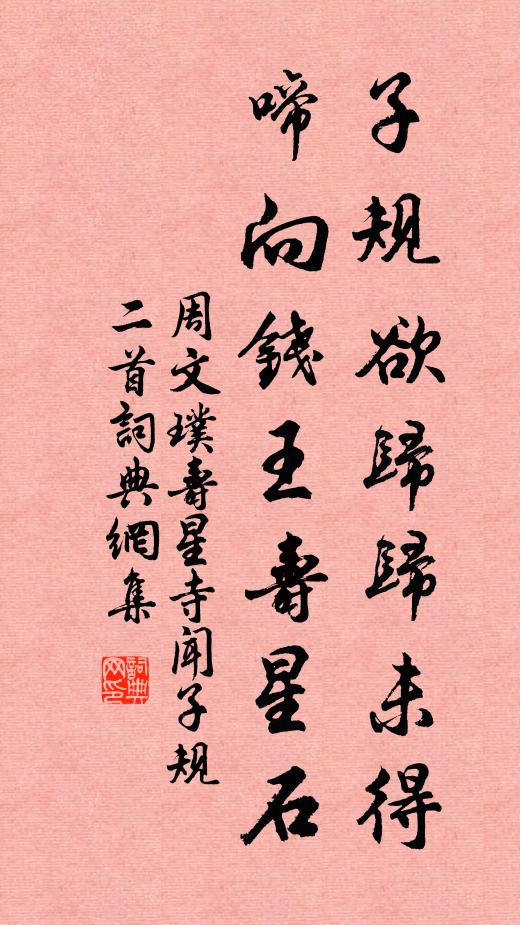 子規欲歸歸未得
啼向錢王壽星石
周文璞壽星寺聞子規
二首詞典網集
詞典
网印